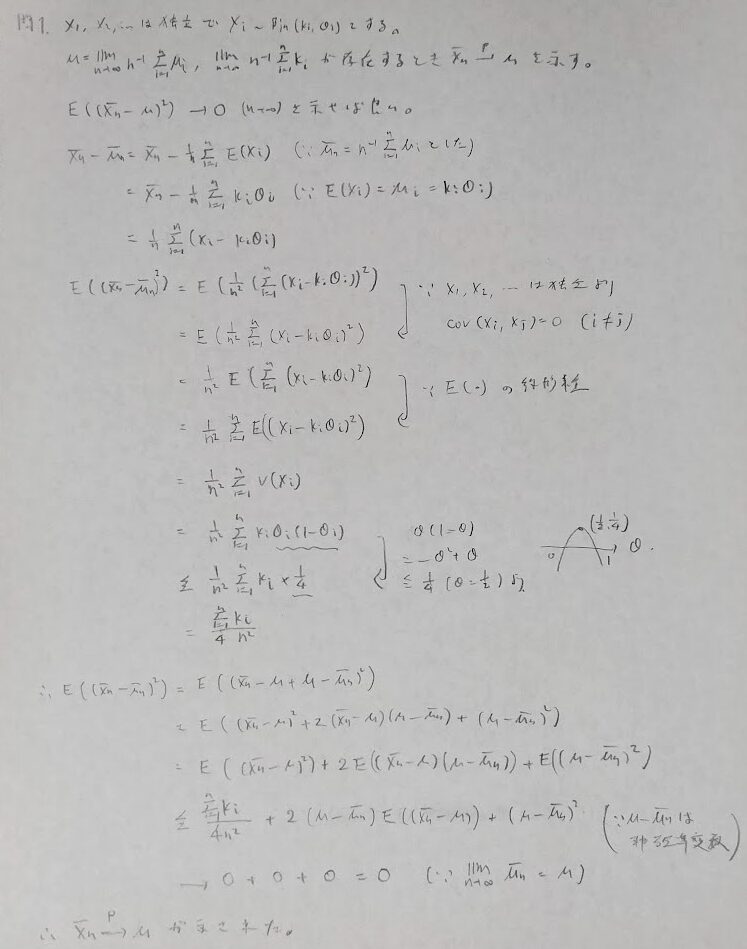 問1. X₁, X₂, … は独立で Xᵢ ~ Bin(kᵢ, θᵢ) とする。
μ = lim_{n→∞} n⁻¹ Σ_{i=1}^n μᵢ, lim_{n→∞} n⁻¹ Σ_{i=1}^n kᵢ が存在するとき X̄n →^P μ を示す。
E((X̄n − μ)²) → 0 (n→∞) を示せば良い。
X̄n − μ̄n = X̄n − 1/n Σ_{i=1}^n E(Xᵢ) (∵ μ̄n = n⁻¹ Σ_{i=1}^n μᵢ とした)
= X̄n − 1/n Σ_{i=1}^n kᵢθᵢ (∵ E(Xᵢ) = μᵢ = kᵢθᵢ)
= 1/n Σ_{i=1}^n (Xᵢ − kᵢθᵢ)
E((X̄n − μ̄n)²) = E(1/n² (Σ_{i=1}^n (Xᵢ − kᵢθᵢ))²) ∵ X₁, X₂, … は独立より
= E(1/n² Σ_{i=1}^n (Xᵢ − kᵢθᵢ)²) cov(Xᵢ, Xⱼ) = 0 (i≠j)
= 1/n² E(Σ_{i=1}^n (Xᵢ − kᵢθᵢ)²) ∵ E(・) の線形性
= 1/n² Σ_{i=1}^n E((Xᵢ − kᵢθᵢ)²)
= 1/n² Σ_{i=1}^n V(Xᵢ)
= 1/n² Σ_{i=1}^n kᵢθᵢ(1−θᵢ) θ(1−θ) (1/2, 1/4)
= −θ² + θ 0 1 θ.
≦ 1/n² Σ_{i=1}^n kᵢ × 1/4 ≦ 1/4 (θ = 1/2) より
= Σ_{i=1}^n kᵢ / 4n²
∴ E((X̄n − μ̄n)²) = E((X̄n − μ + μ − μ̄n)²)
= E((X̄n − μ)² + 2(X̄n − μ)(μ − μ̄n) + (μ − μ̄n)²)
= E((X̄n − μ)²) + 2E((X̄n − μ)(μ − μ̄n)) + E((μ − μ̄n)²)
≦ Σ_{i=1}^n kᵢ / 4n² + 2(μ − μ̄n)E((X̄n − μ)) + (μ − μ̄n)² (∵ μ − μ̄n は
非確率変数)
→ 0 + 0 + 0 = 0 (∵ lim_{n→∞} μ̄n = μ)
∴ X̄n →^P μ が示された。